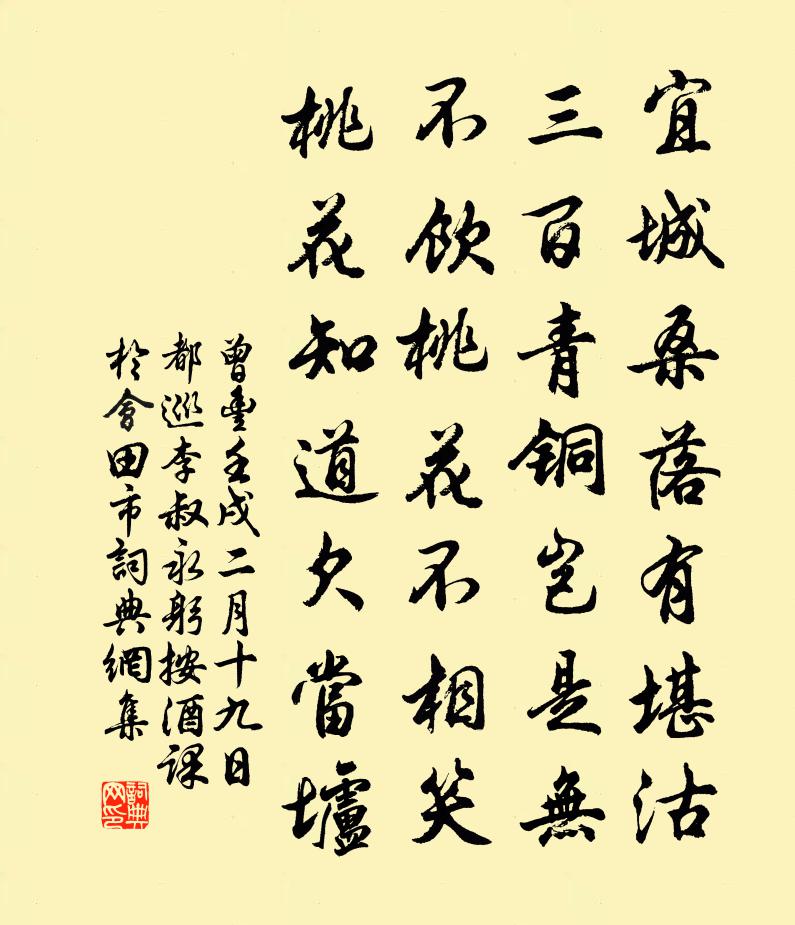 宜城桑落有堪沽
三百青铜岂是無
不飲桃花不相笑
桃花知道欠當壚
曾豊壬戌二月十九日
都巡李叔永躬按酒課
於會田市詞典網集
詞典网印